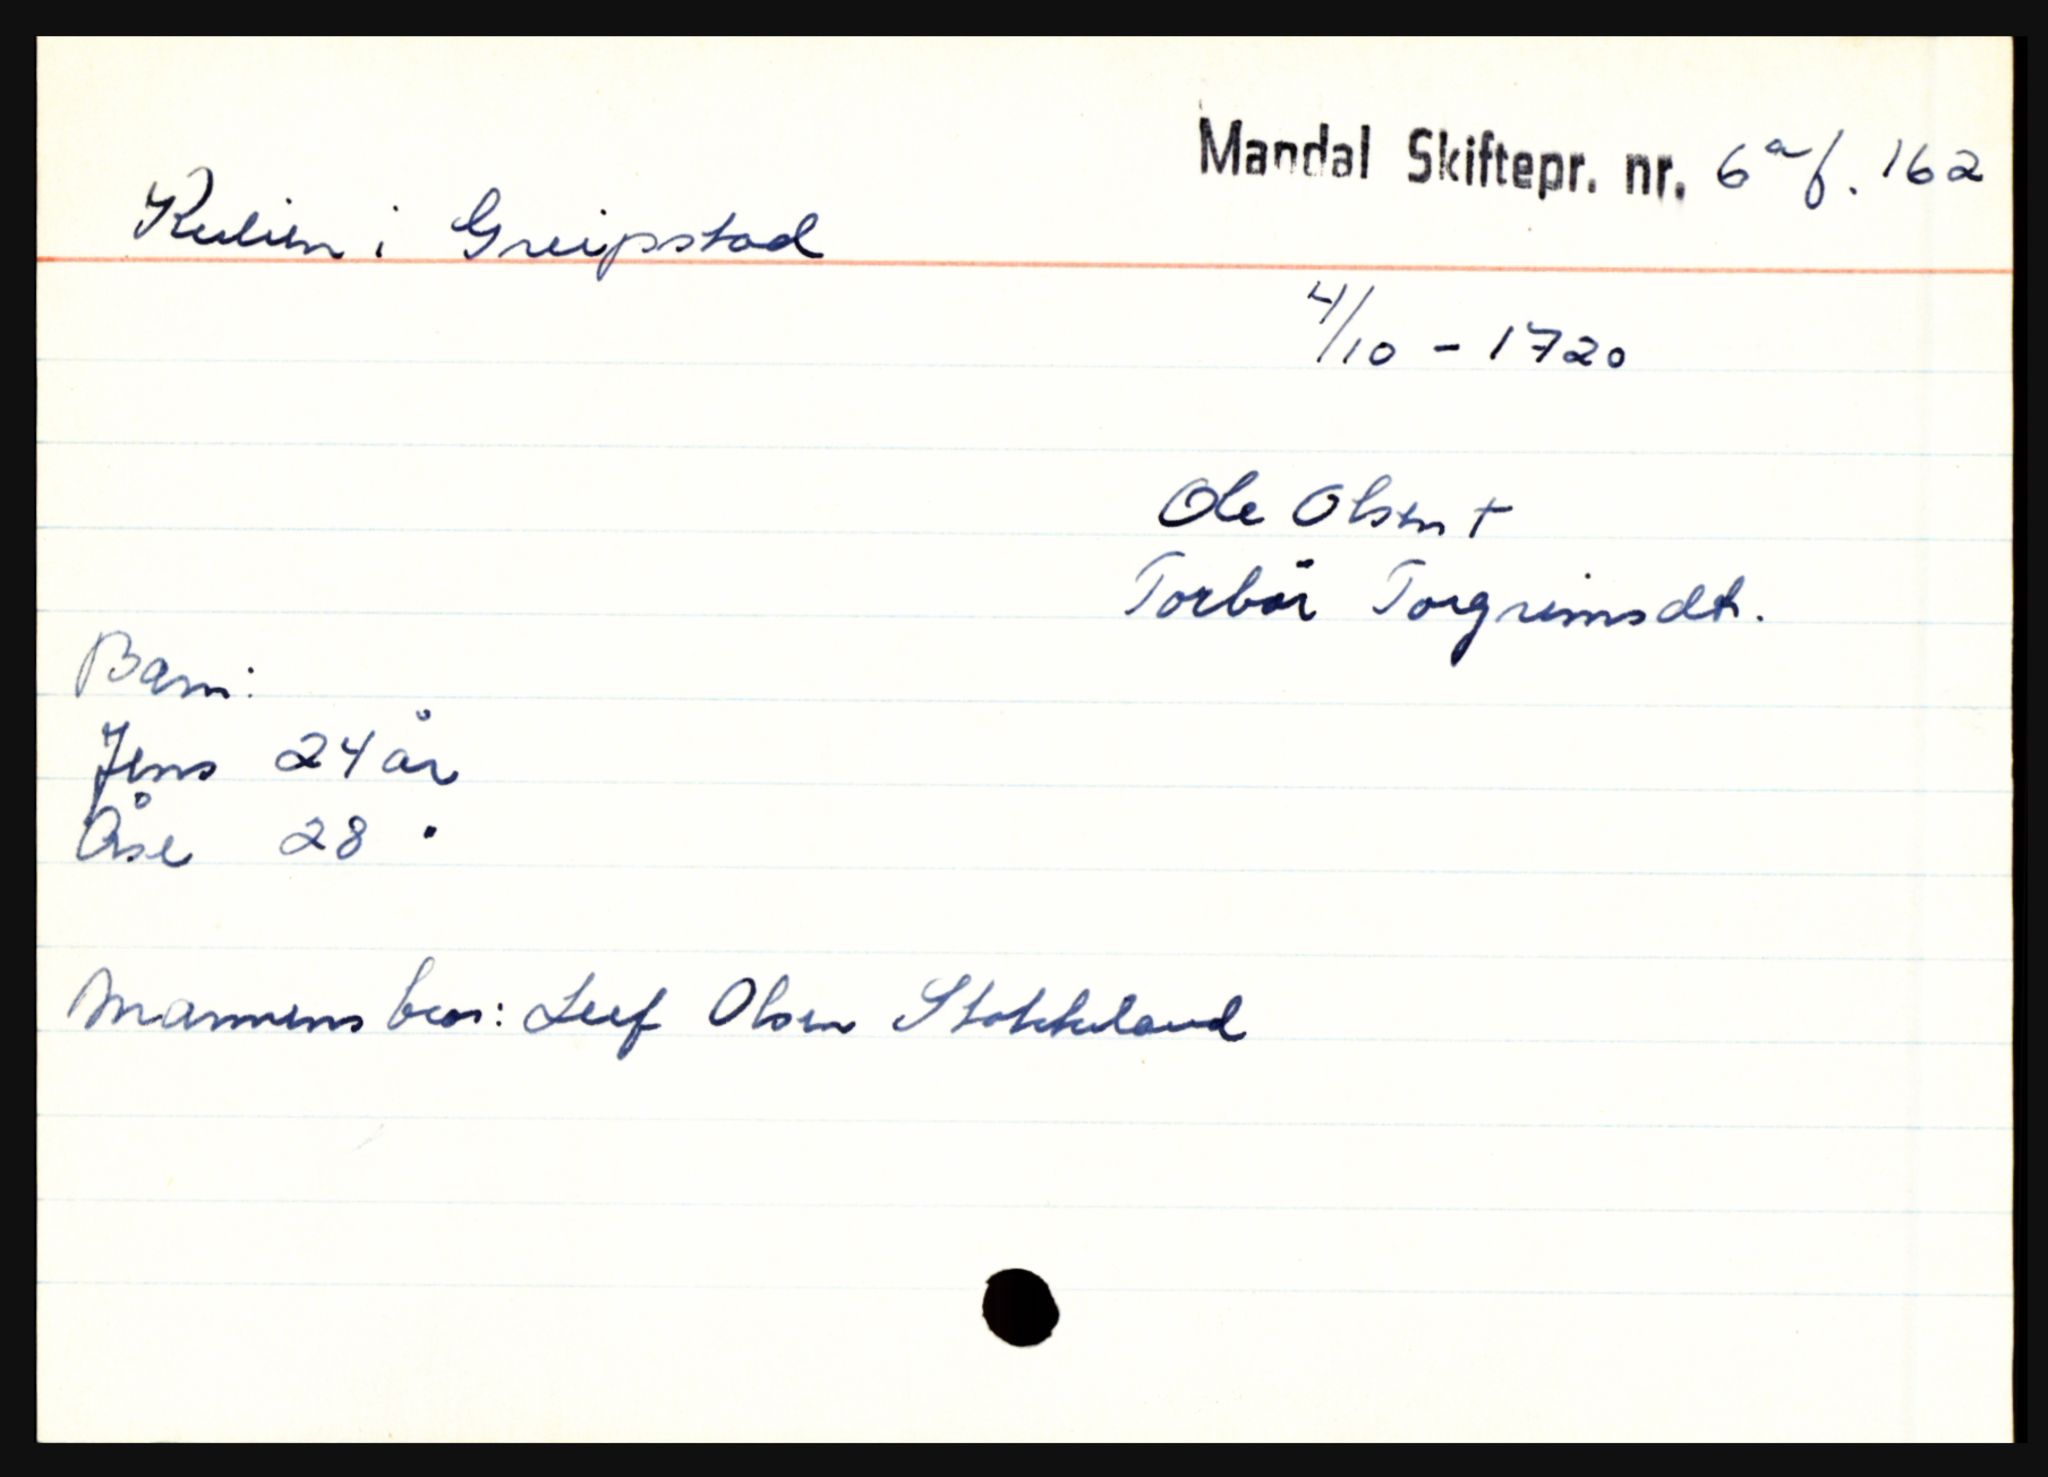 Mandal Skiftepr. nr. 6a f. 162
Kulien i Greipstad
4/10 - 1720
Ole Olsen +
Torbör Torgrimsdtr.
Barn:
Jens 24 år
Åse 28 "
Mannens bror: Leif Olsen Stokkeland